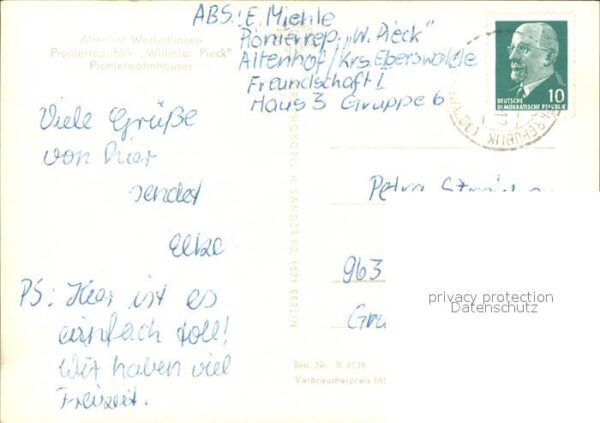 Altenhof Werbellinsee
Pionierrepublik „Wilhelm Pieck"
Pionierwohnhäuser
ABS: E. Miehle
Pionierrep. „W. Pieck"
Altenhof/Krs. Eberswalde
Freundschaft I
Haus 3 Gruppe 6
DEUTSCHE
DEMOKRATISCHE REPUBLIK
10
Viele Grüße
von hier
sendet
Elke
PS: Hier ist es
einfach toll!
Wir haben viel
Freizeit.
Petra
963
privacy protection
Datenschutz
Best. Nr.
Verbraucherpreis
BERLIN